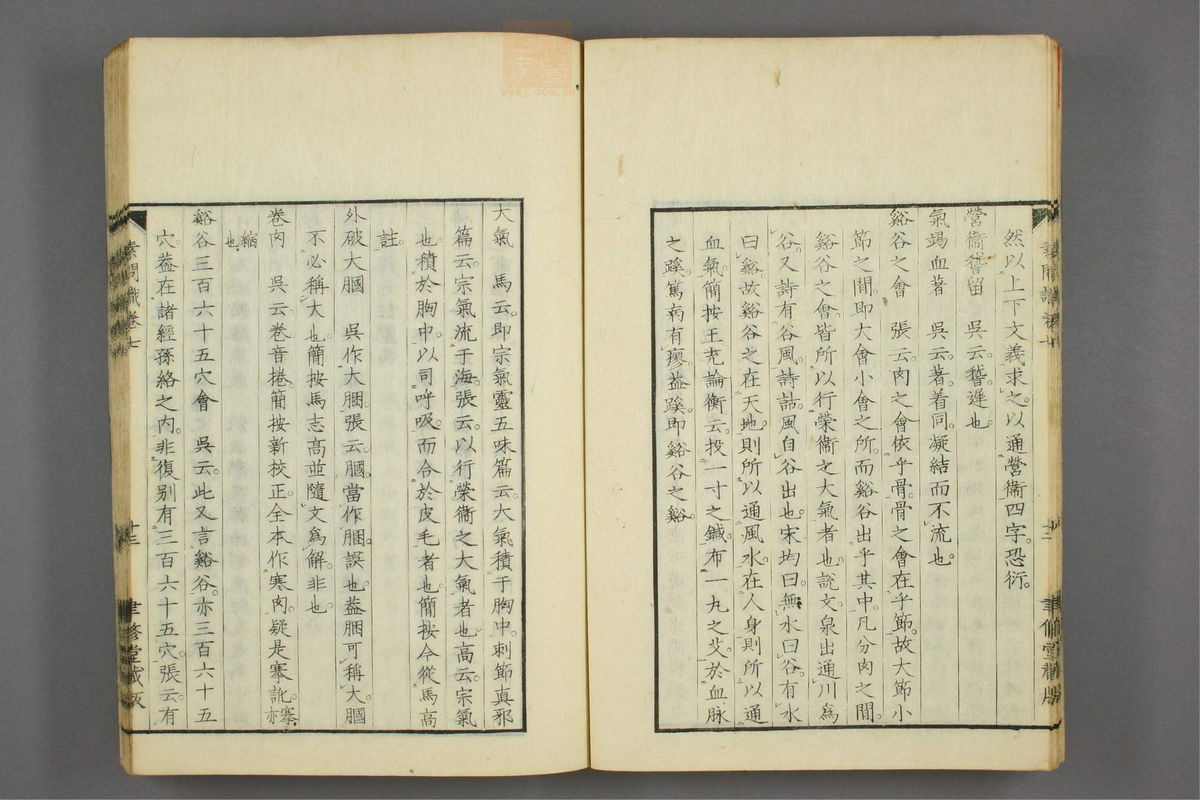 然以上下文義求之。以通營衞四字。恐衍。
營衞稽留　吳云。稽遲也。
氣竭血著　吳云。著。着同。凝結而不流也。
谿谷之會　張云。肉之會依乎骨。骨之會在乎節。故大節小
節之間。即大會小會之所。而谿谷出乎其中。凡分肉之間。
谿谷之會。皆所以行榮衞之大氣者也。說文泉出通川爲
谷。又詩有谷風。詩詁。風自谷出也。宋均曰。無水曰谷。有水
曰谿。故谿谷之在天地。則所以通風水。在人身則所以通
血氣。簡按王充論衡云。投一寸之鍼。布一丸之艾。於血脉
之蹊。篤病有瘳。蓋蹊即谿谷之谿。
大氣　馬云。即宗氣。靈五味篇云。大氣積于胸中。刺節真邪
篇云。宗氣流于海。張云。以行榮衞之大氣者也。高云。宗氣
也。積於胸中。以司呼吸。而合於皮毛者也。簡按今從馬高
註。
外破大膕　吳作大䐃。張云。膕。當作䐃。誤也。蓋䐃可稱大。膕
不必稱大也。簡按馬志高並隨文爲解。非也。
卷肉　吳云。卷音捲。簡按新校正。全本作寒肉。疑是搴訛。搴亦
縮也
谿谷三百六十五穴會　吳云。此又言谿谷。亦三百六十五
穴。蓋在諸經孫絡之內。非復別有三百六十五穴。張云。有
素問識卷七
十三
聿修堂藏版